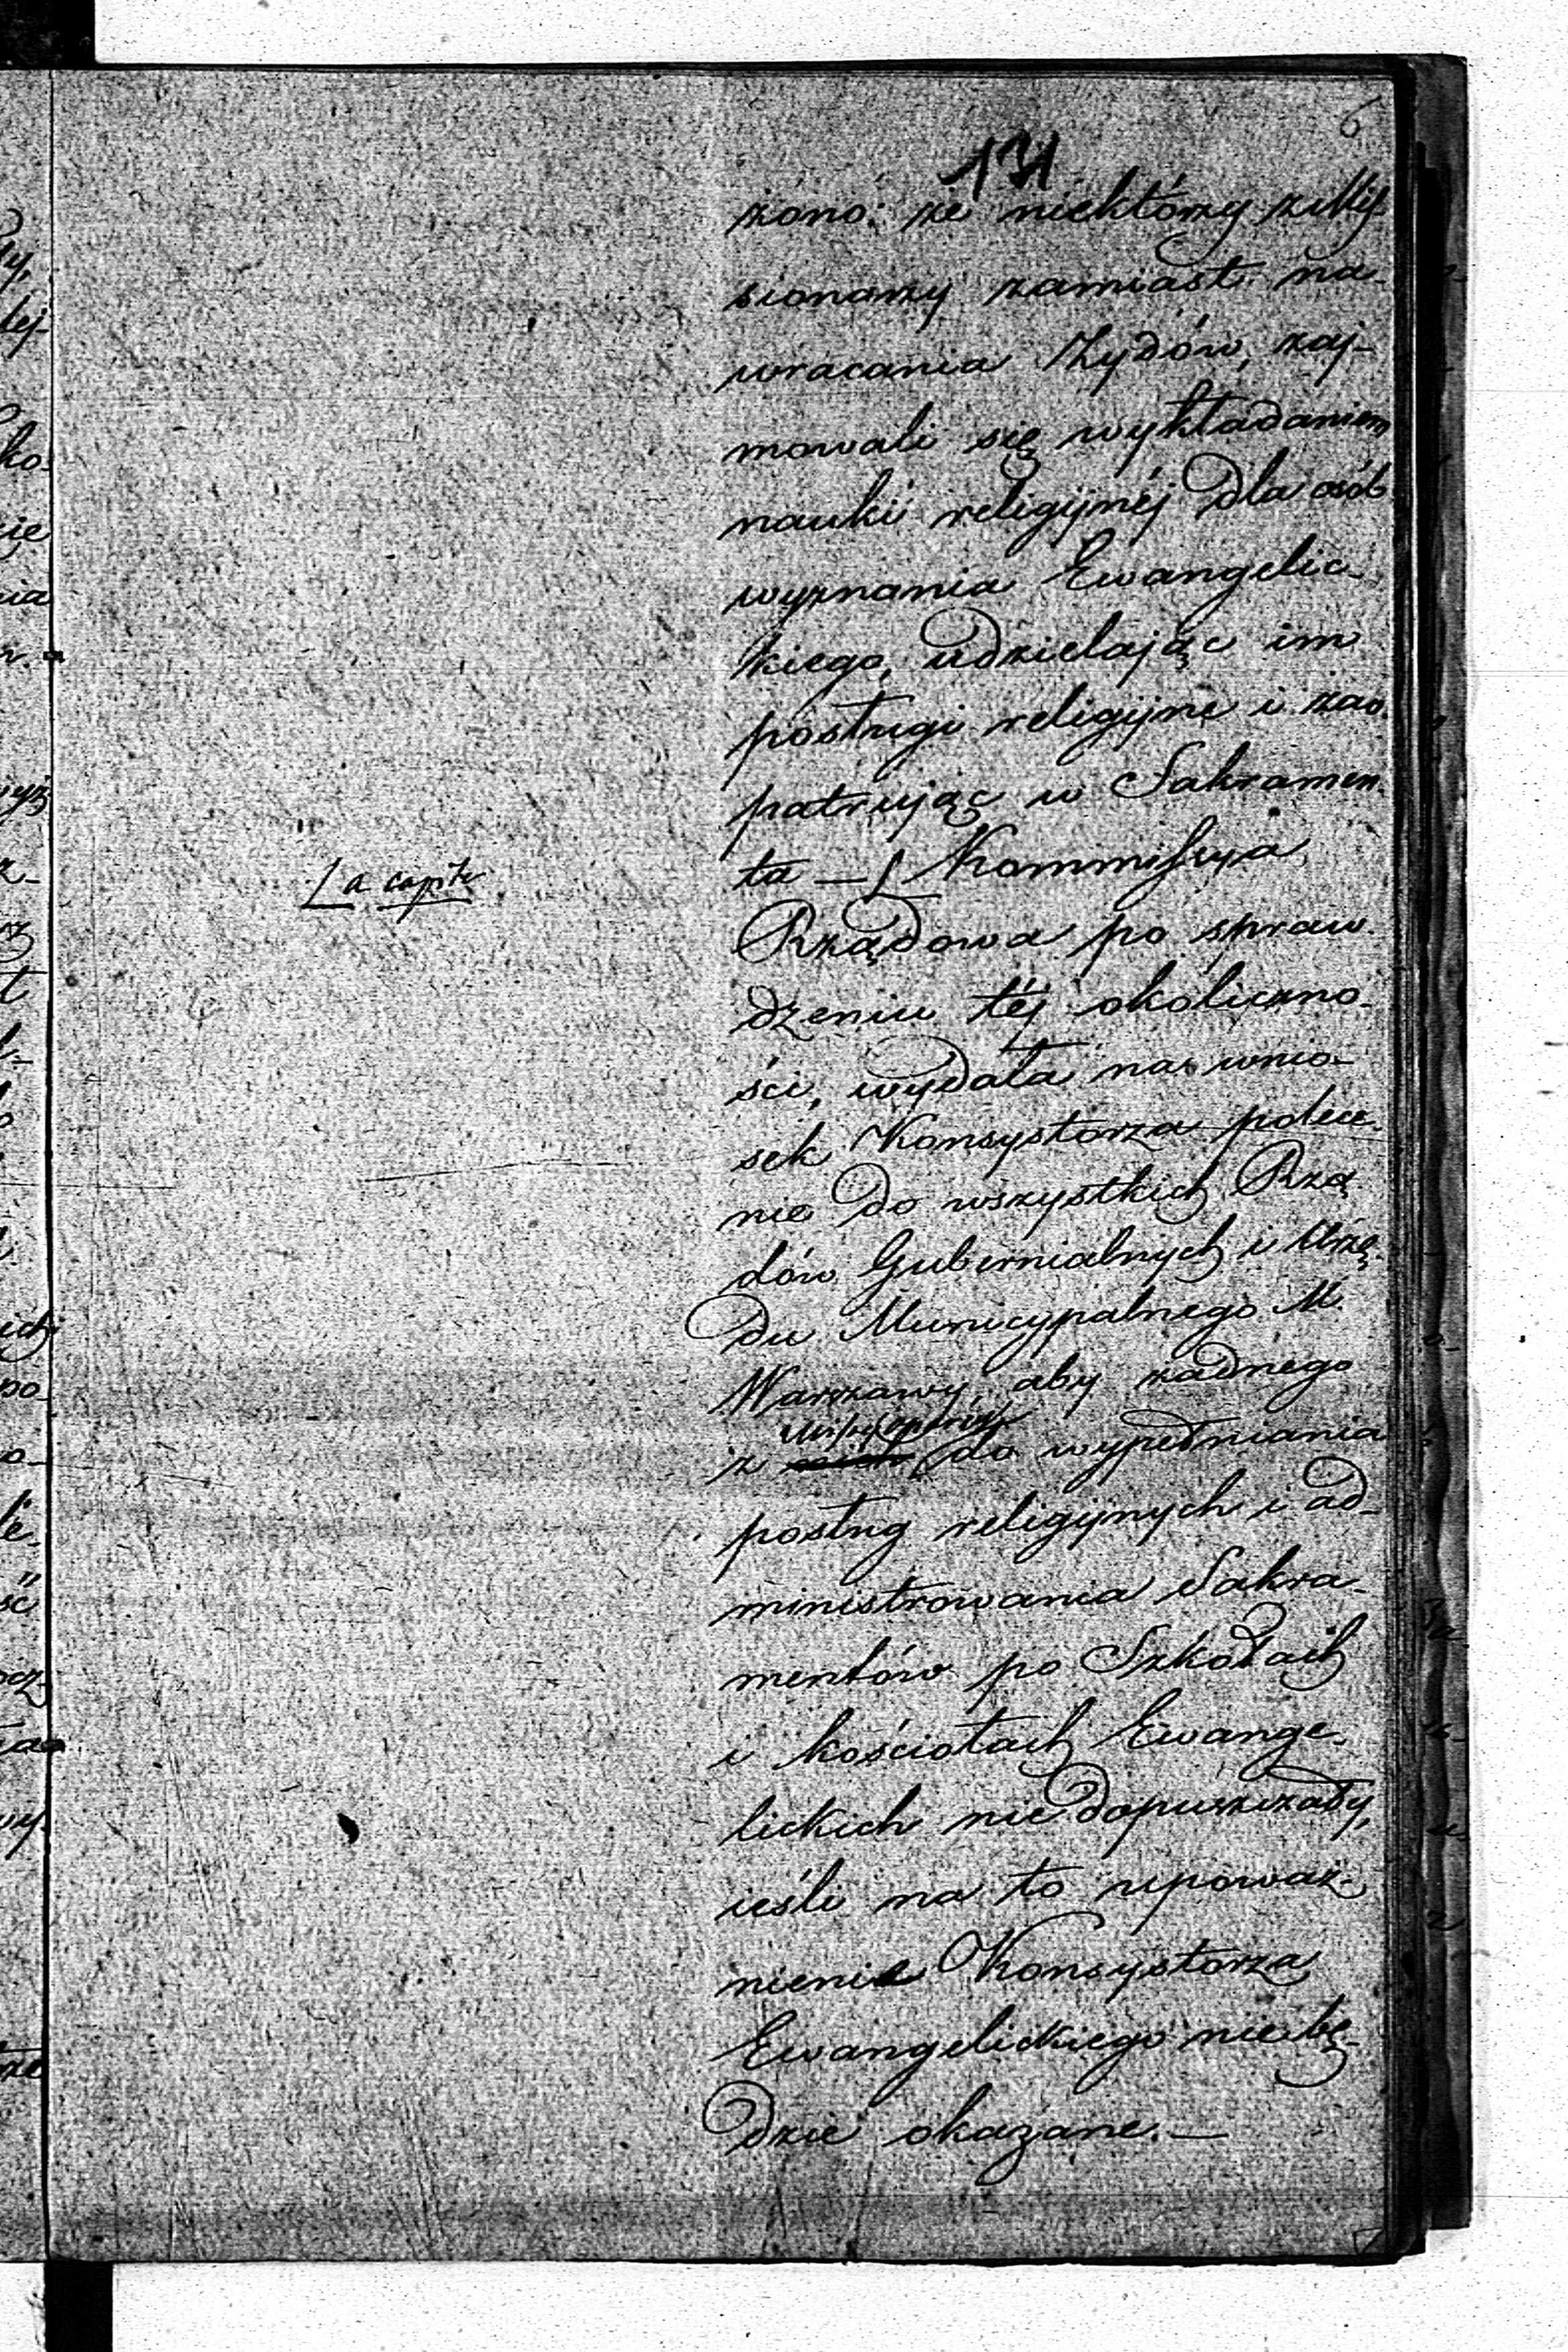 6
131
żono: że niektórzy z Mis-
sionarzy zamiast na-
wracania Żydów, zaj-
mowali się wykładaniem
nauki religijnéj dla osób
wyznania Ewangelic-
kiego, udzielając im
posługi religijne i zao-
patrując w Sakramen-
ta — [ Kommissya
[ a capite
Rządowa po spraw-
dzeniu téj okoliczno-
ści, wydała na wnio-
sek Konsystorza polece-
nie do wszystkich Rzą-
dów Gubernialnych i Urzę-
du Municypalnego M.
Warszawy, aby żadnego
z Missyonarzy do wypełniania
posług religijnych i ad-
ministrowania Sakra-
mentów po Szkołach
i kościołach Ewange-
lickich nie dopuszczały,
ieśli na to upoważ-
nienie Konsystorza
Ewangelickiego nie bę-
dzie okazane. —